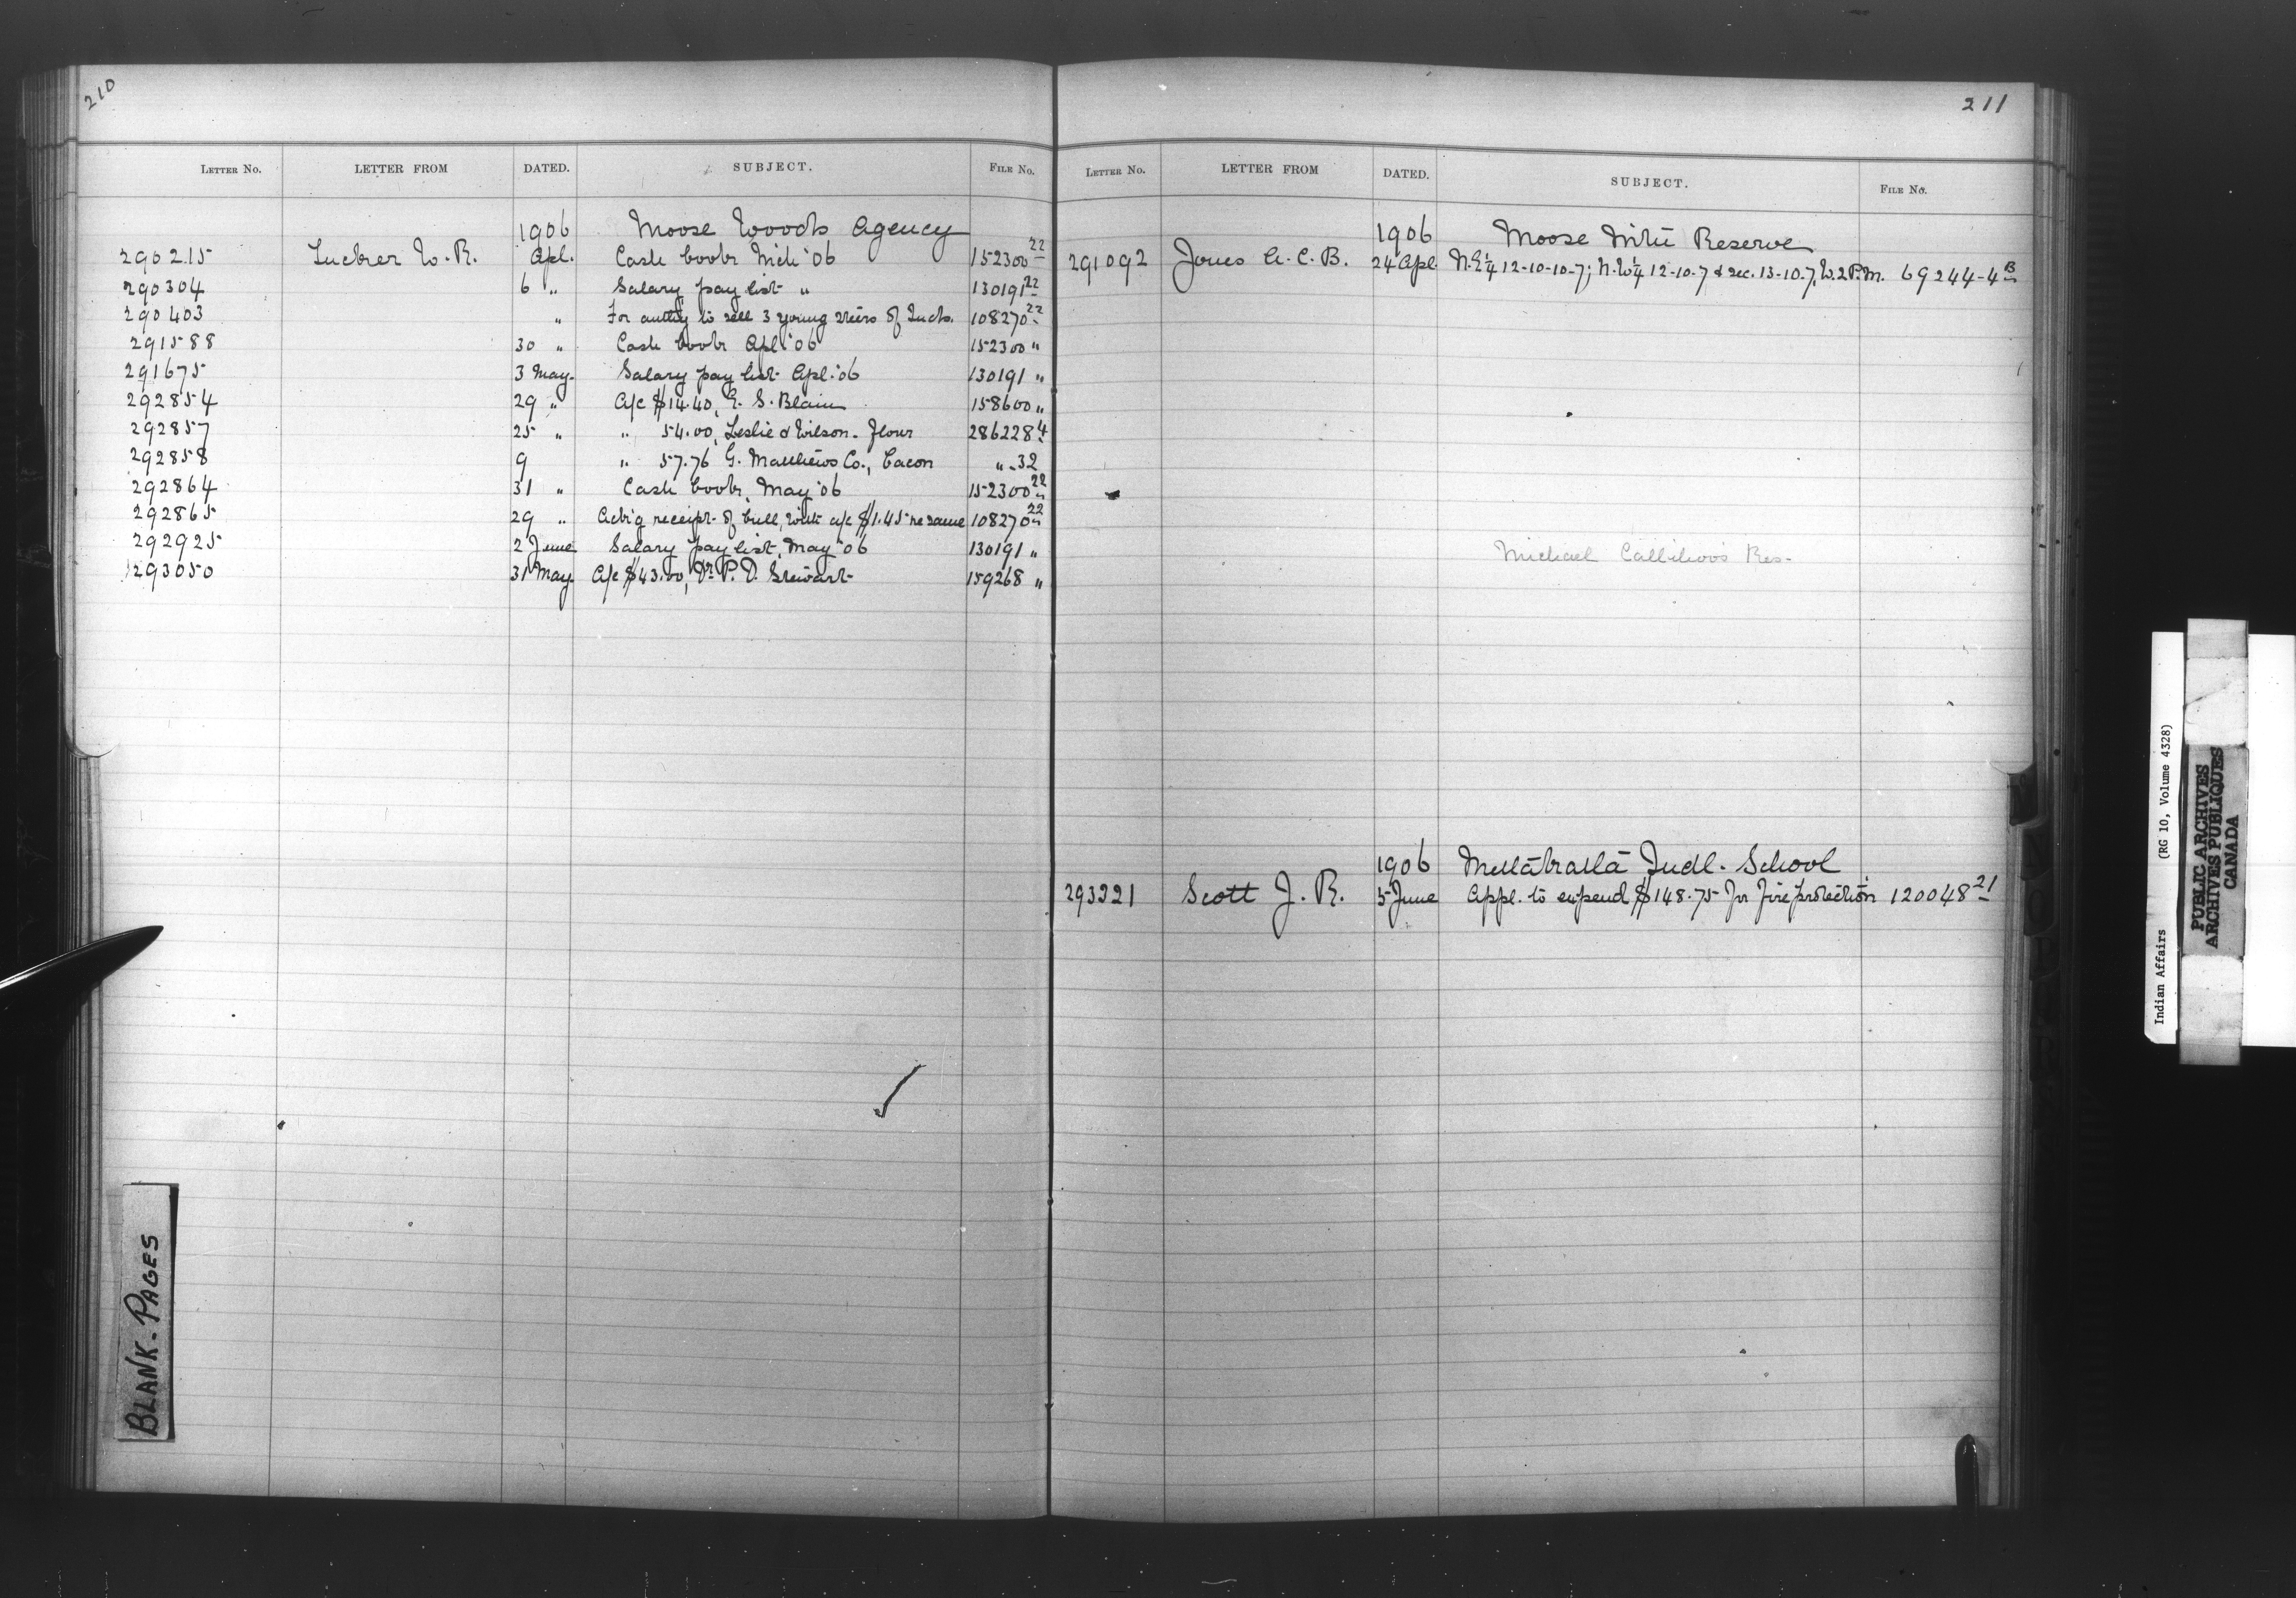 210
LETTER NO. LETTER FROM DATED. SUBJECT. FILE NO.
1906 Moose Woods Agency
290215 Tucker W. R. Apl. Cash book Mch '06 152300-22
290304 6 " Salary pay list " 130191-22
290403 " For authy to sell 3 young steers of Inds. 108270-22
291588 30 " Cash book Apl '06 152300 "
291675 3 May. Salary pay list Apl. '06 130191 "
292854 29 " A/c $14.40, E. S. Blain 158600 "
292857 25 " " 54.00, Leslie & Wilson - flour 286228-4
292858 9 " 57.76 G. Matthews Co., bacon " -32
292864 31 " Cash book, May '06 152300-22
292865 29 " Ack'g receipt of bull, with a/c $1.45 re same 108270-22
292925 2 June Salary pay list, May '06 130191 "
293050 31 May. A/c $43.00, Dr. P. D. Stewart 159268 "
BLANK-PAGES
211
LETTER NO. LETTER FROM DATED. SUBJECT. FILE NO.
1906 Moose Reserve
291092 Jones A. C. B. 24 Apl. N.E¼ 12-10-10-7; N.W¼ 12-10-7 & sec. 13-10-7, W.2 P.M. 69244-4B
Michael Callihoo's Res-
1906 Metlakatla Indl. School
293321 Scott J. R. 5 June Appl. to expend $148.75 for fire protection 120048-21
Indian Affairs (RG 10, Volume 4328)
PUBLIC ARCHIVES
ARCHIVES PUBLIQUES
CANADA